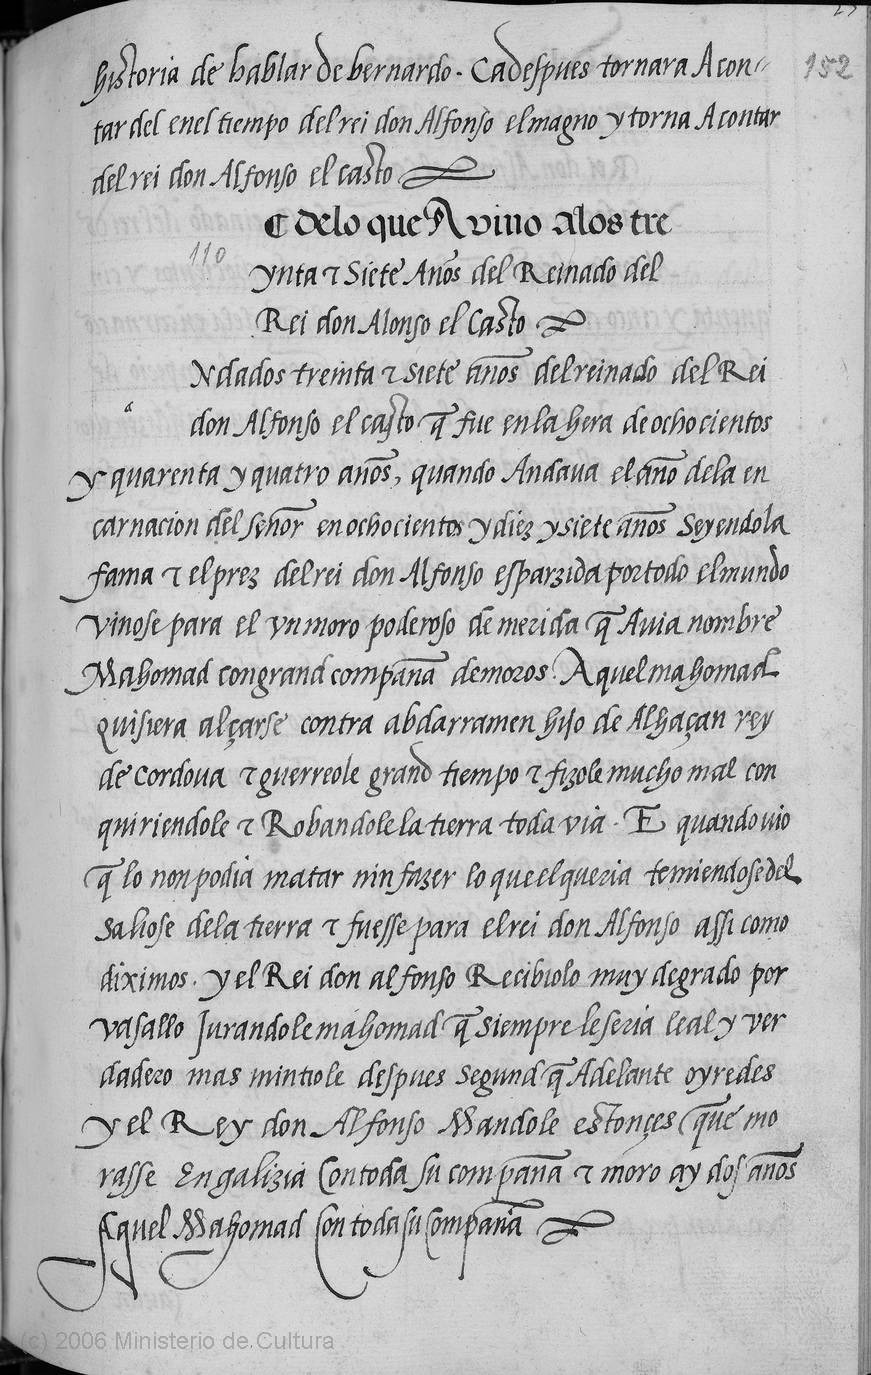 152
historia de hablar de bernardo. Ca despues tornara A con-
tar del en el tiempo del rei don Alfonso el magno y torna A contar
del rei don Alfonso el casto
C de lo que Avino alos tre
110
ynta τ Siete Años del Reinado del
Rei don Alonso el Casto
Ndados treinta τ siete años del reinado del Rei
a
don Alfonso el casto q̃ fue en la hera de ochocientos
y quarenta y quatro años, quando Andaua el año dela en
carnacion del señor en ochocientos y diez y siete años Seyendo la
fama τ el prez del rei don Alfonso esparzida por todo el mundo
vinose para el vn moro poderoso de merida q̃ Auia nombre
Mahomad con grand compaña de moros. Aquel mahomad
quisiera alçarse contra abdarramen hijo de Alhaçan rey
de Cordoua τ guerreole grand tiempo τ fizole mucho mal con
quiriendole τ Robandole la tierra toda via. E quando uio
q̃ lo non podia matar nin fazer lo que el queria temiendose del
Saliose dela tierra τ fuesse para el rei don Alfonso assi como
diximos. y el Rei don alfonso Recibiolo muy de grado por
vasallo Jurandole mahomad q̃ siempre le seria leal y ver
dadero mas mintiole despues segund q̃ Adelante oyredes
y el Rey don Alfonso Mandole estonçes que mo
rasse En galizia Con toda su compaña τ moro ay dos años
Aquel Mahomad Con toda su Compaña
(c) 2006 Ministerio de Cultura